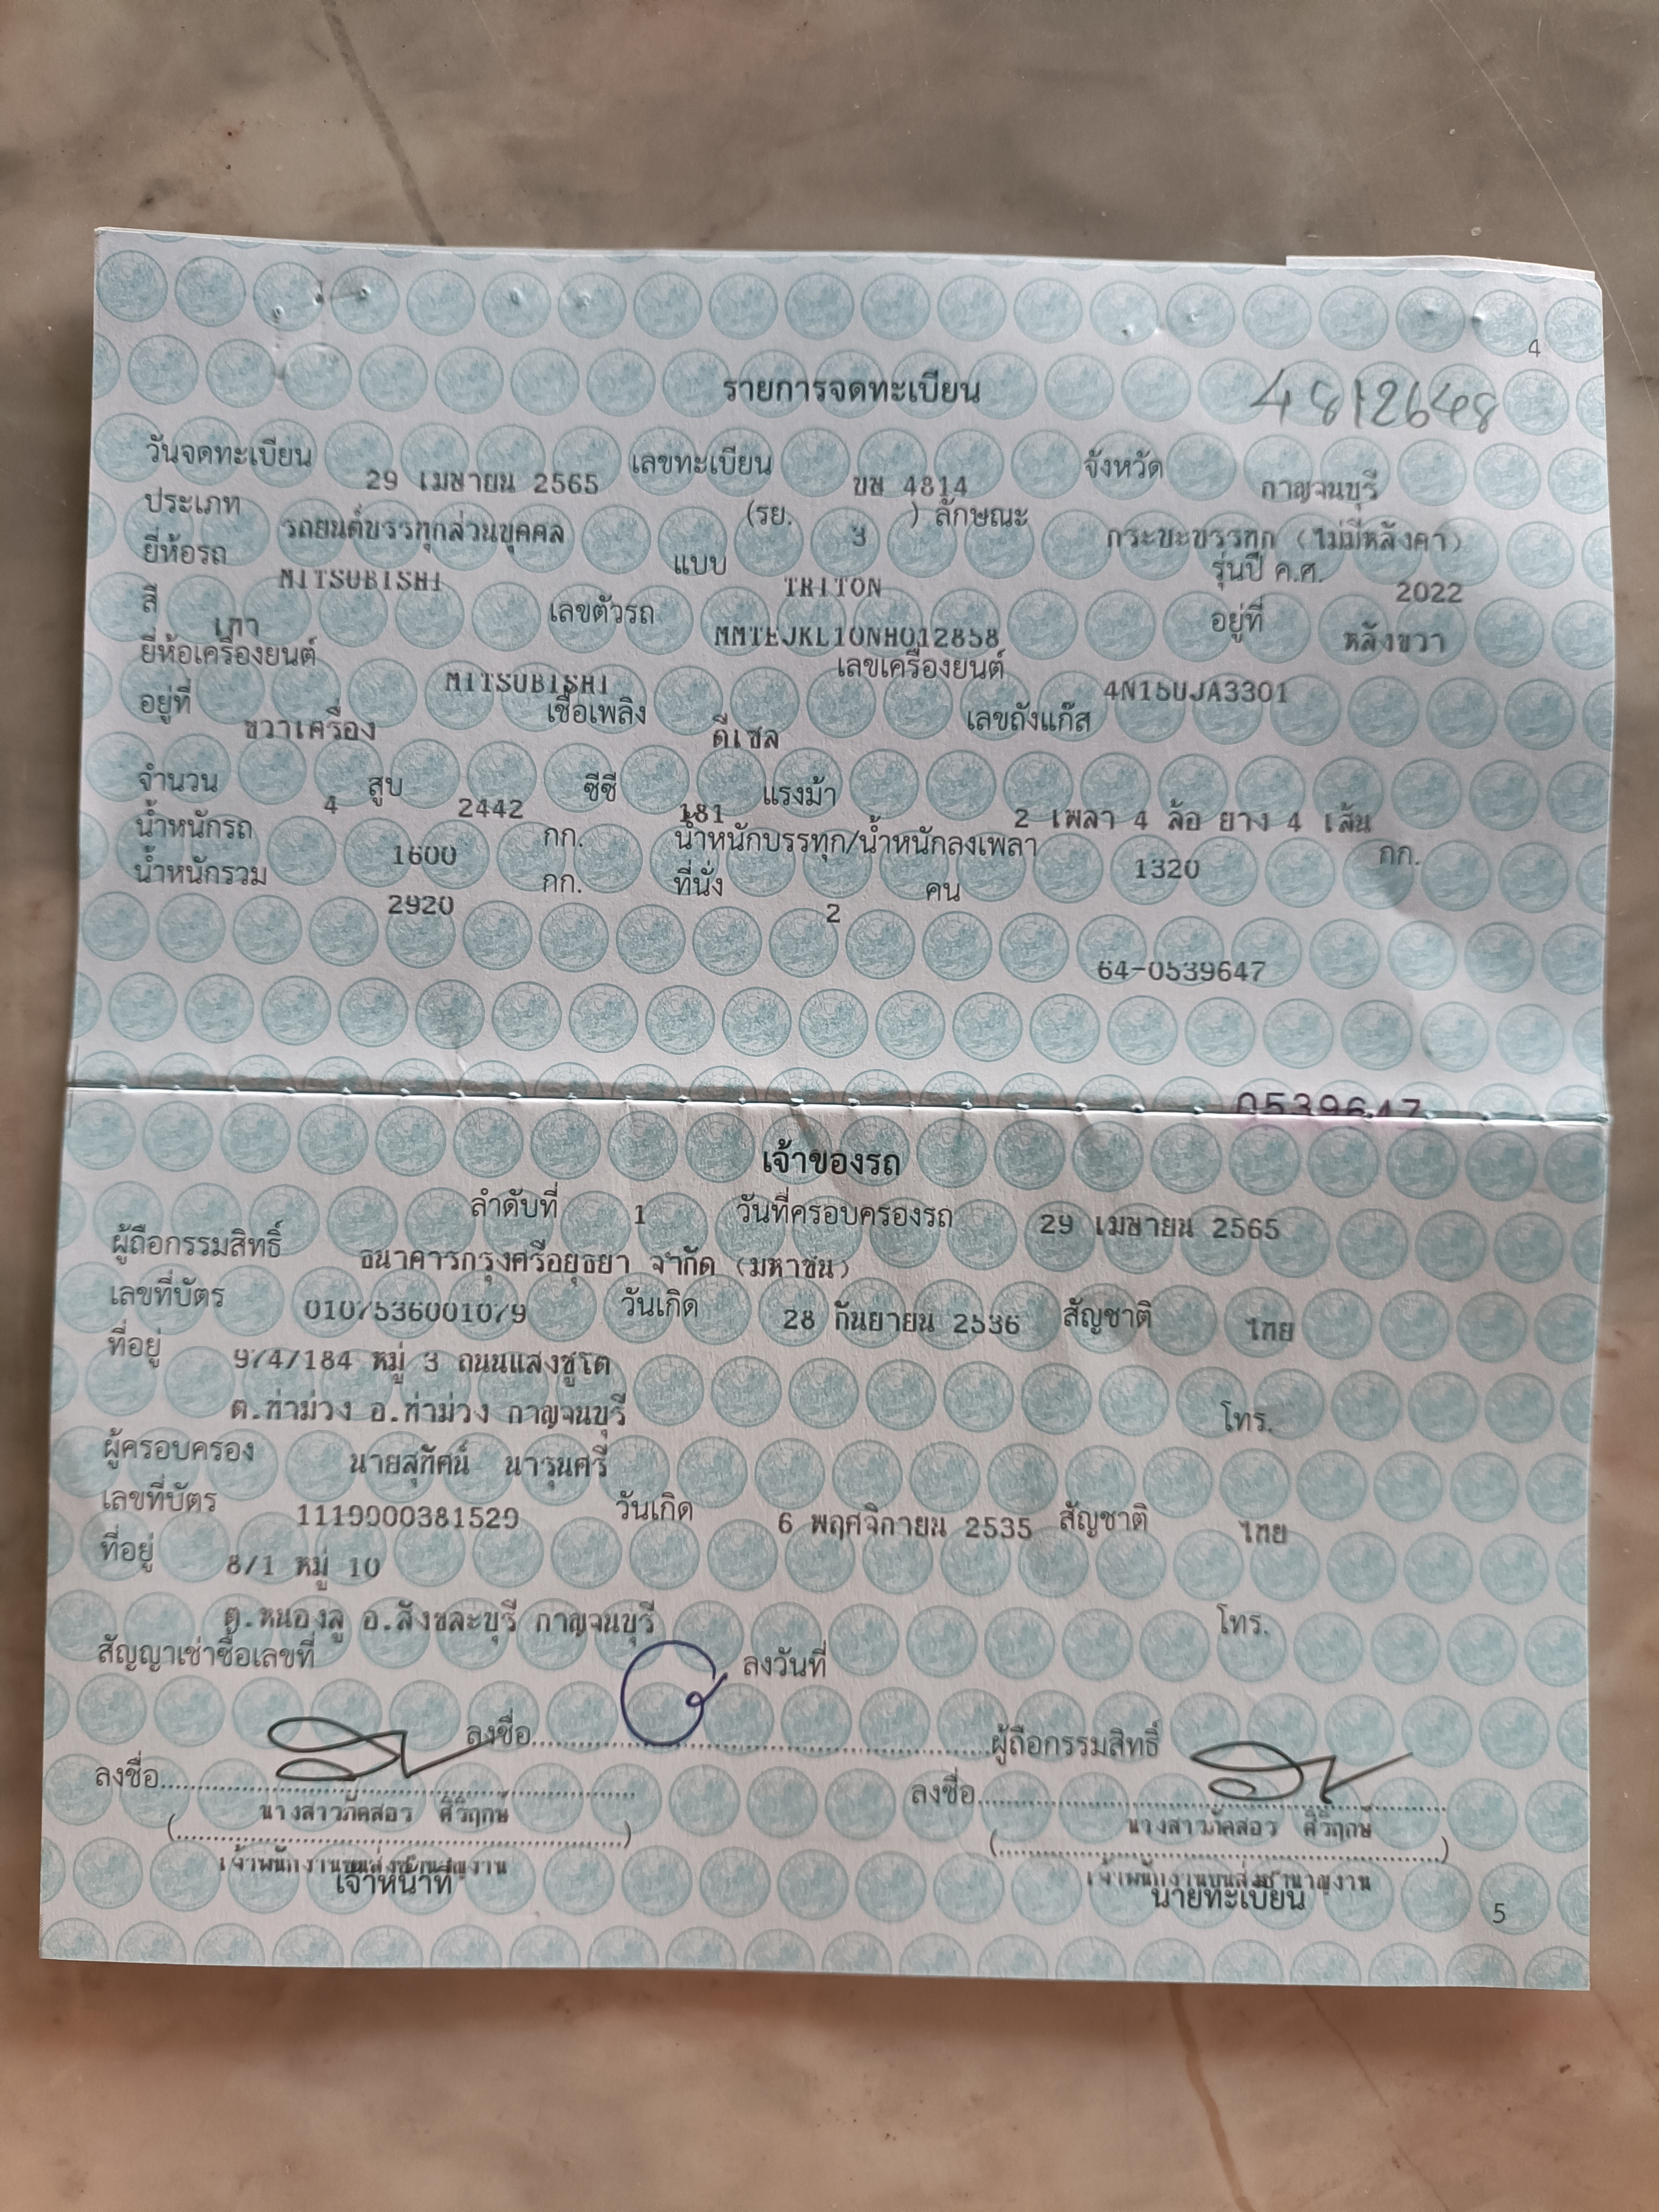 4
รายการจดทะเบียน 4812648
วันจดทะเบียน 29 เมษายน 2565 เลขทะเบียน ขษ 4814 จังหวัด กาญจนบุรี
ประเภท รถยนต์บรรทุกส่วนบุคคล (รย. 3 ) ลักษณะ กระบะบรรทุก (ไม่มีหลังคา)
ยี่ห้อรถ MITSUBISHI แบบ TRITON รุ่นปี ค.ศ. 2022
สี เทา เลขตัวรถ MMTEJKL10NH012858 อยู่ที่ หลังขวา
ยี่ห้อเครื่องยนต์ MITSUBISHI เลขเครื่องยนต์ 4N15UJA3301
อยู่ที่ ขวาเครื่อง เชื้อเพลิง ดีเซล เลขถังแก๊ส
จำนวน 4 สูบ 2442 ซีซี 181 แรงม้า 2 เพลา 4 ล้อ ยาง 4 เส้น
น้ำหนักรถ 1600 กก. น้ำหนักบรรทุก/น้ำหนักลงเพลา 1320 กก.
น้ำหนักรวม 2920 กก. ที่นั่ง 2 คน
64-0539647
0539647
เจ้าของรถ
ลำดับที่ 1 วันที่ครอบครองรถ 29 เมษายน 2565
ผู้ถือกรรมสิทธิ์ ธนาคารกรุงศรีอยุธยา จำกัด (มหาชน)
เลขที่บัตร 0107536001079 วันเกิด 28 กันยายน 2536 สัญชาติ ไทย
ที่อยู่ 974/184 หมู่ 3 ถนนแสงชูโต
ต.ท่าม่วง อ.ท่าม่วง กาญจนบุรี โทร.
ผู้ครอบครอง นายสุทัศน์ นารุนศรี
เลขที่บัตร 1119900381529 วันเกิด 6 พฤศจิกายน 2535 สัญชาติ ไทย
ที่อยู่ 8/1 หมู่ 10
ต.หนองลู อ.สังขละบุรี กาญจนบุรี โทร.
สัญญาเช่าซื้อเลขที่ ลงวันที่
ลงชื่อ ผู้ถือกรรมสิทธิ์
ลงชื่อ ลงชื่อ
(นางสาวภัคสอร ศิริฤกษ์) (นางสาวภัคสอร ศิริฤกษ์)
เจ้าพนักงานขนส่งชำนาญงาน เจ้าพนักงานขนส่งชำนาญงาน
เจ้าหน้าที่ นายทะเบียน
5